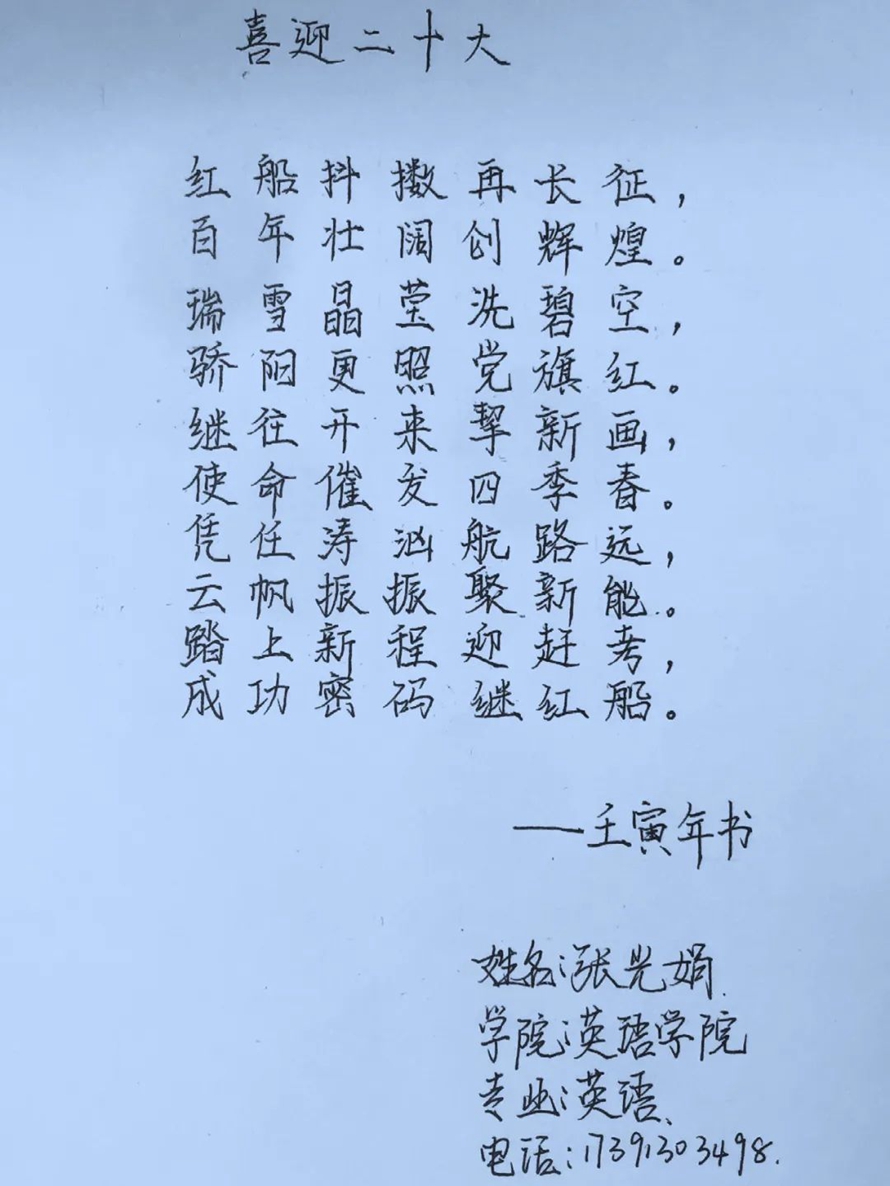 喜迎二十大
红船抖擞再长征，
百年壮阔创辉煌。
瑞雪晶莹洗碧空，
骄阳更照党旗红。
继往开来挈新画，
使命催发四季春。
凭任涛汹航路远，
云帆振振聚新能。
踏上新程迎赶考，
成功密码继红船。
——壬寅年书
姓名：张光娟
学院：英语学院
专业：英语
电话：17391303498.